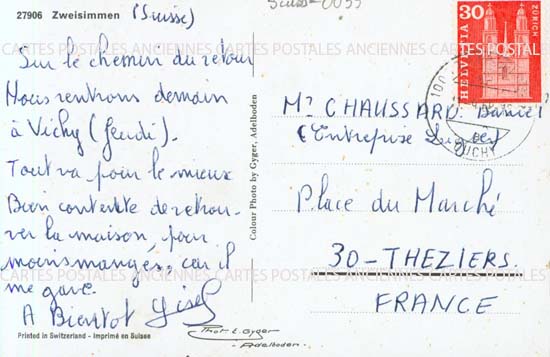 27906 Zweisimmen (Suisse)
Suisse 0055
Sur le chemin du retour
Nous rentrons demain
à Vichy (Jeudi).
Tout va pour le mieux
Bien contente de retrou-
ver la maison, pour
moins manger, car il
me gave.
A Bientot Gisel
Printed in Switzerland - Imprimé en Suisse
Colour Photo by Gyger, Adelboden
Phot. E. Gyger
Adelboden.
HELVETIA 30 ZÜRICH
OUCHY
Mr CHAUSSARD Daniel
(Entreprise
Place du Marché
30-THEZIERS.
FRANCE
CARTES POSTALES ANCIENNES CARTES POSTALES ANCIENNES CARTES
CARTES POSTALES ANCIENNES CARTES POSTALES ANCIENNES CARTES